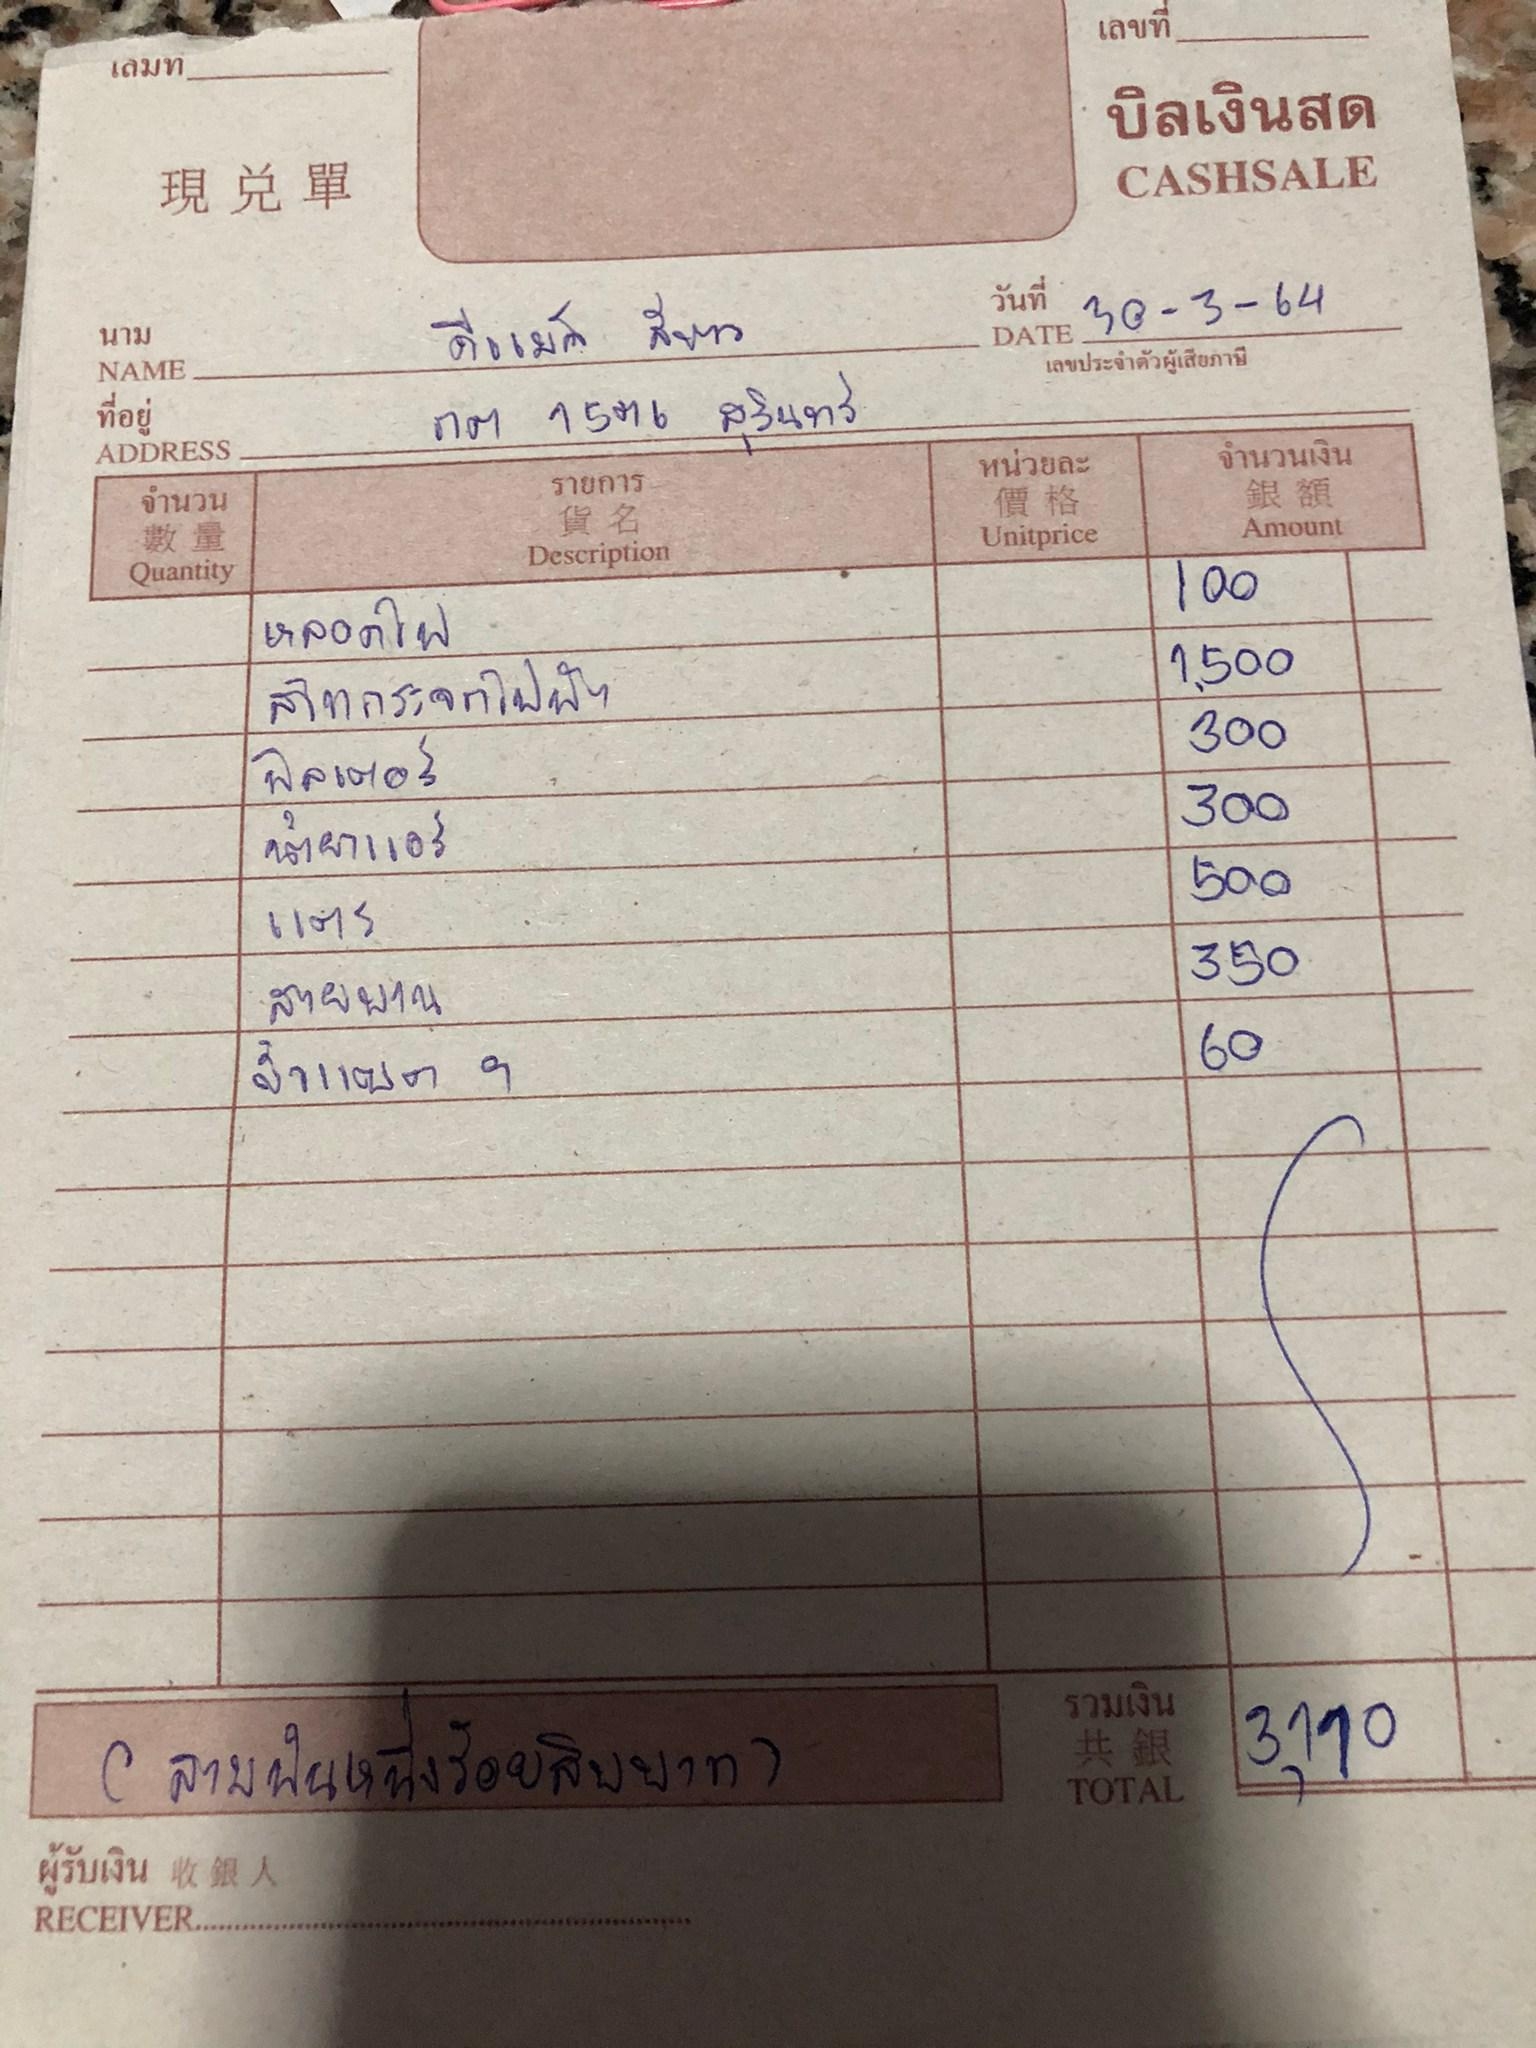 เล่มที่
เลขที่
บิลเงินสด
現兑單
CASHSALE
นาม
NAME
ดีแม็ก สีขาว
วันที่
DATE 30-3-64
เลขประจำตัวผู้เสียภาษี
ที่อยู่
ADDRESS
กต 1586 สุรินทร์
จำนวน รายการ หน่วยละ จำนวนเงิน
數量 貨名 價格 銀額
Quantity Description Unitprice Amount
หลอดไฟ 100
สวิทกระจกไฟฟ้า 1,500
ฟิลเตอร์ 300
น้ำยาแอร์ 300
แตร 500
สายพาน 350
ขั้วแบต 60
(สามพันหนึ่งร้อยสิบบาท)
รวมเงิน
共銀
TOTAL
3,110
ผู้รับเงิน 收銀人
RECEIVER